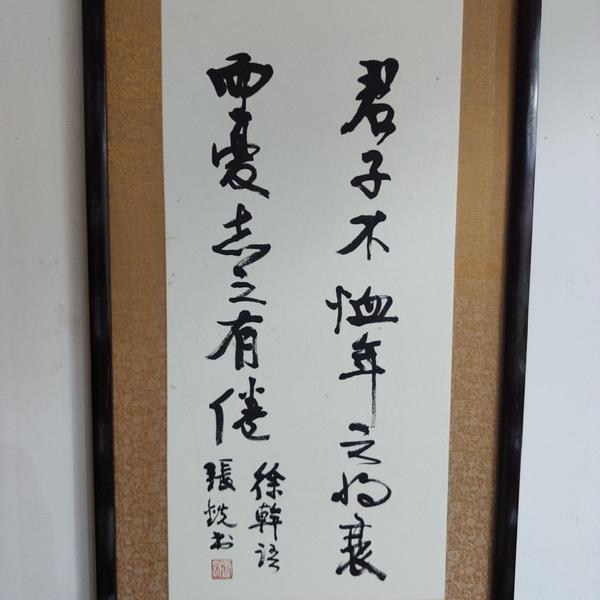 君子不恤年之将衰
而憂志之有倦
徐幹語
張鋭书